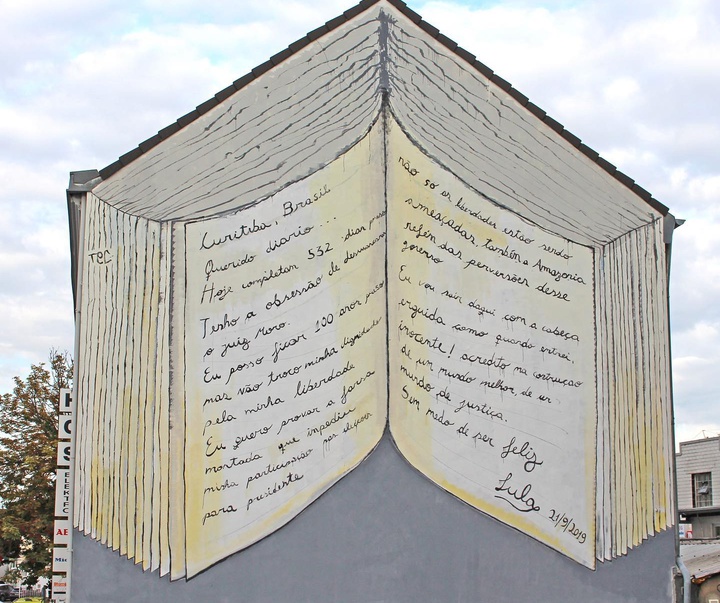 TEC
Curitiba, Brasil
Querido diario...
Hoje completam 532 dias preso
Tenho a obsessão de desmascarar
o juiz Moro.
Eu posso ficar 100 anos preso
mas não troco minha dignidade
pela minha liberdade
Eu quero provar a farsa
montada que impediu
minha participação nas eleições
para presidente
não so as liberdades estão sendo
ameaçadas, também a Amazonia
refén das perversões desse
governo
Eu vou sair daqui com a cabeça
erguida como quando entrei,
inocente! acredito na contrução
de um mundo melhor, de um
mundo de justiça.
Sem medo de ser feliz
Lula
21/9/2019
H
C
S
ELEKTRO
AE